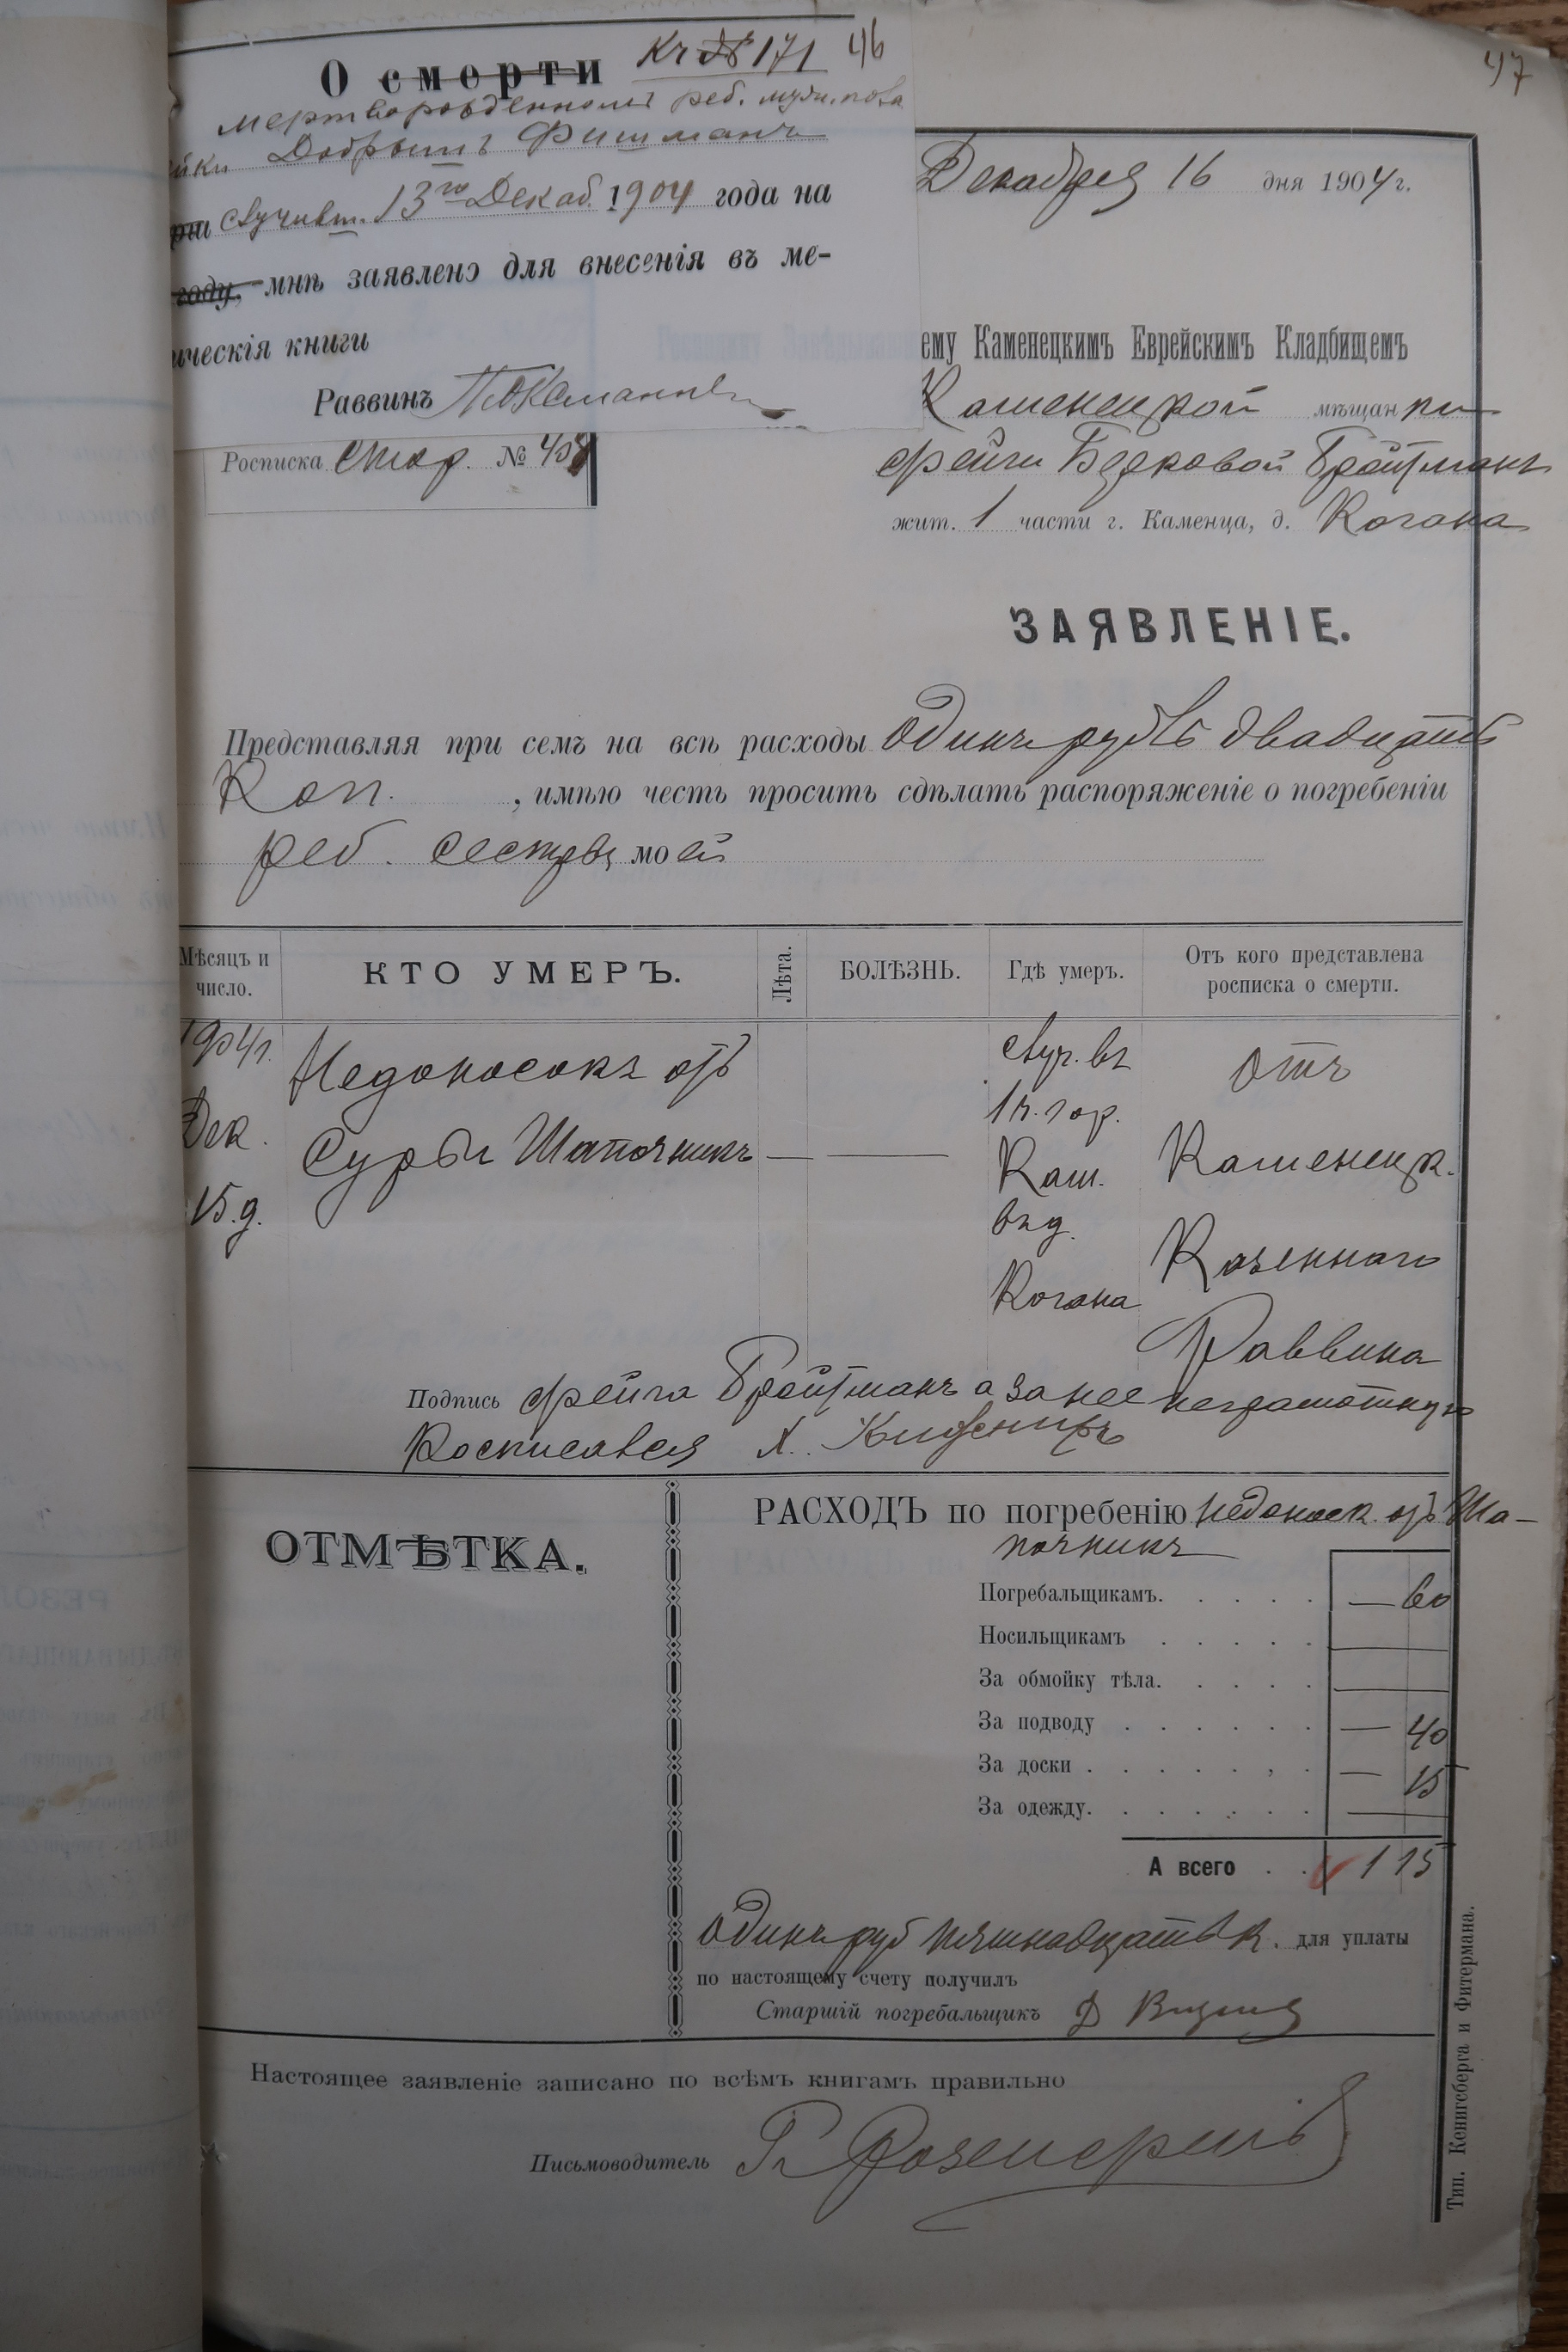 47
О смерти Кч № 171 46
мертворожденномъ реб. муж. пола
йки Добрышъ Фишманъ
рти случивш. 13го Декаб. 1904 года на
году, мнѣ заявлено для внесенія въ ме-
ическія книги
Раввинъ
Росписка Стор. №
Декабря 16 дня 1904 г.
ему Каменецкимъ Еврейскимъ Кладбищемъ
Каменецкой мѣщанки
Фейги Берковой Бройтманъ
жит. 1 части г. Каменца, д. Когана
ЗАЯВЛЕНІЕ.
Представляя при семъ на всѣ расходы Одинъ рубль двадцать
Коп. , имѣю честь просить сдѣлать распоряженіе о погребеніи
реб. сестры моей
Мѣсяцъ и число. КТО УМЕРЪ. Лѣта. БОЛѢЗНЬ. Гдѣ умеръ. Отъ кого представлена росписка о смерти.
1904 г. Недоносокъ отъ случ. въ Отъ
Дек. Суры Шапочникъ — — 1 ч. гор. Каменецк.
15 д. Кам. Казеннаго
въ д. Когана Раввина
Подпись Фейга Бройтманъ а за нее неграмотную
Росписался Х.
ОТМѢТКА.
РАСХОДЪ по погребенію недоноск. отъ Ша-
почникъ
Погребальщикамъ. . . . . — 60
Носильщикамъ . . . . . —
За обмойку тѣла. . . . . —
За подводу . . . . . . — 40
За доски . . . . . , . — 15
За одежду. . . . . . . —
А всего . . 1 15
Одинъ руб пятнадцать к. для уплаты
по настоящему счету получилъ
Старшій погребальщикъ Д
Настоящее заявленіе записано по всѣмъ книгамъ правильно
Письмоводитель
Тип. Кенигсберга и Фитермана.